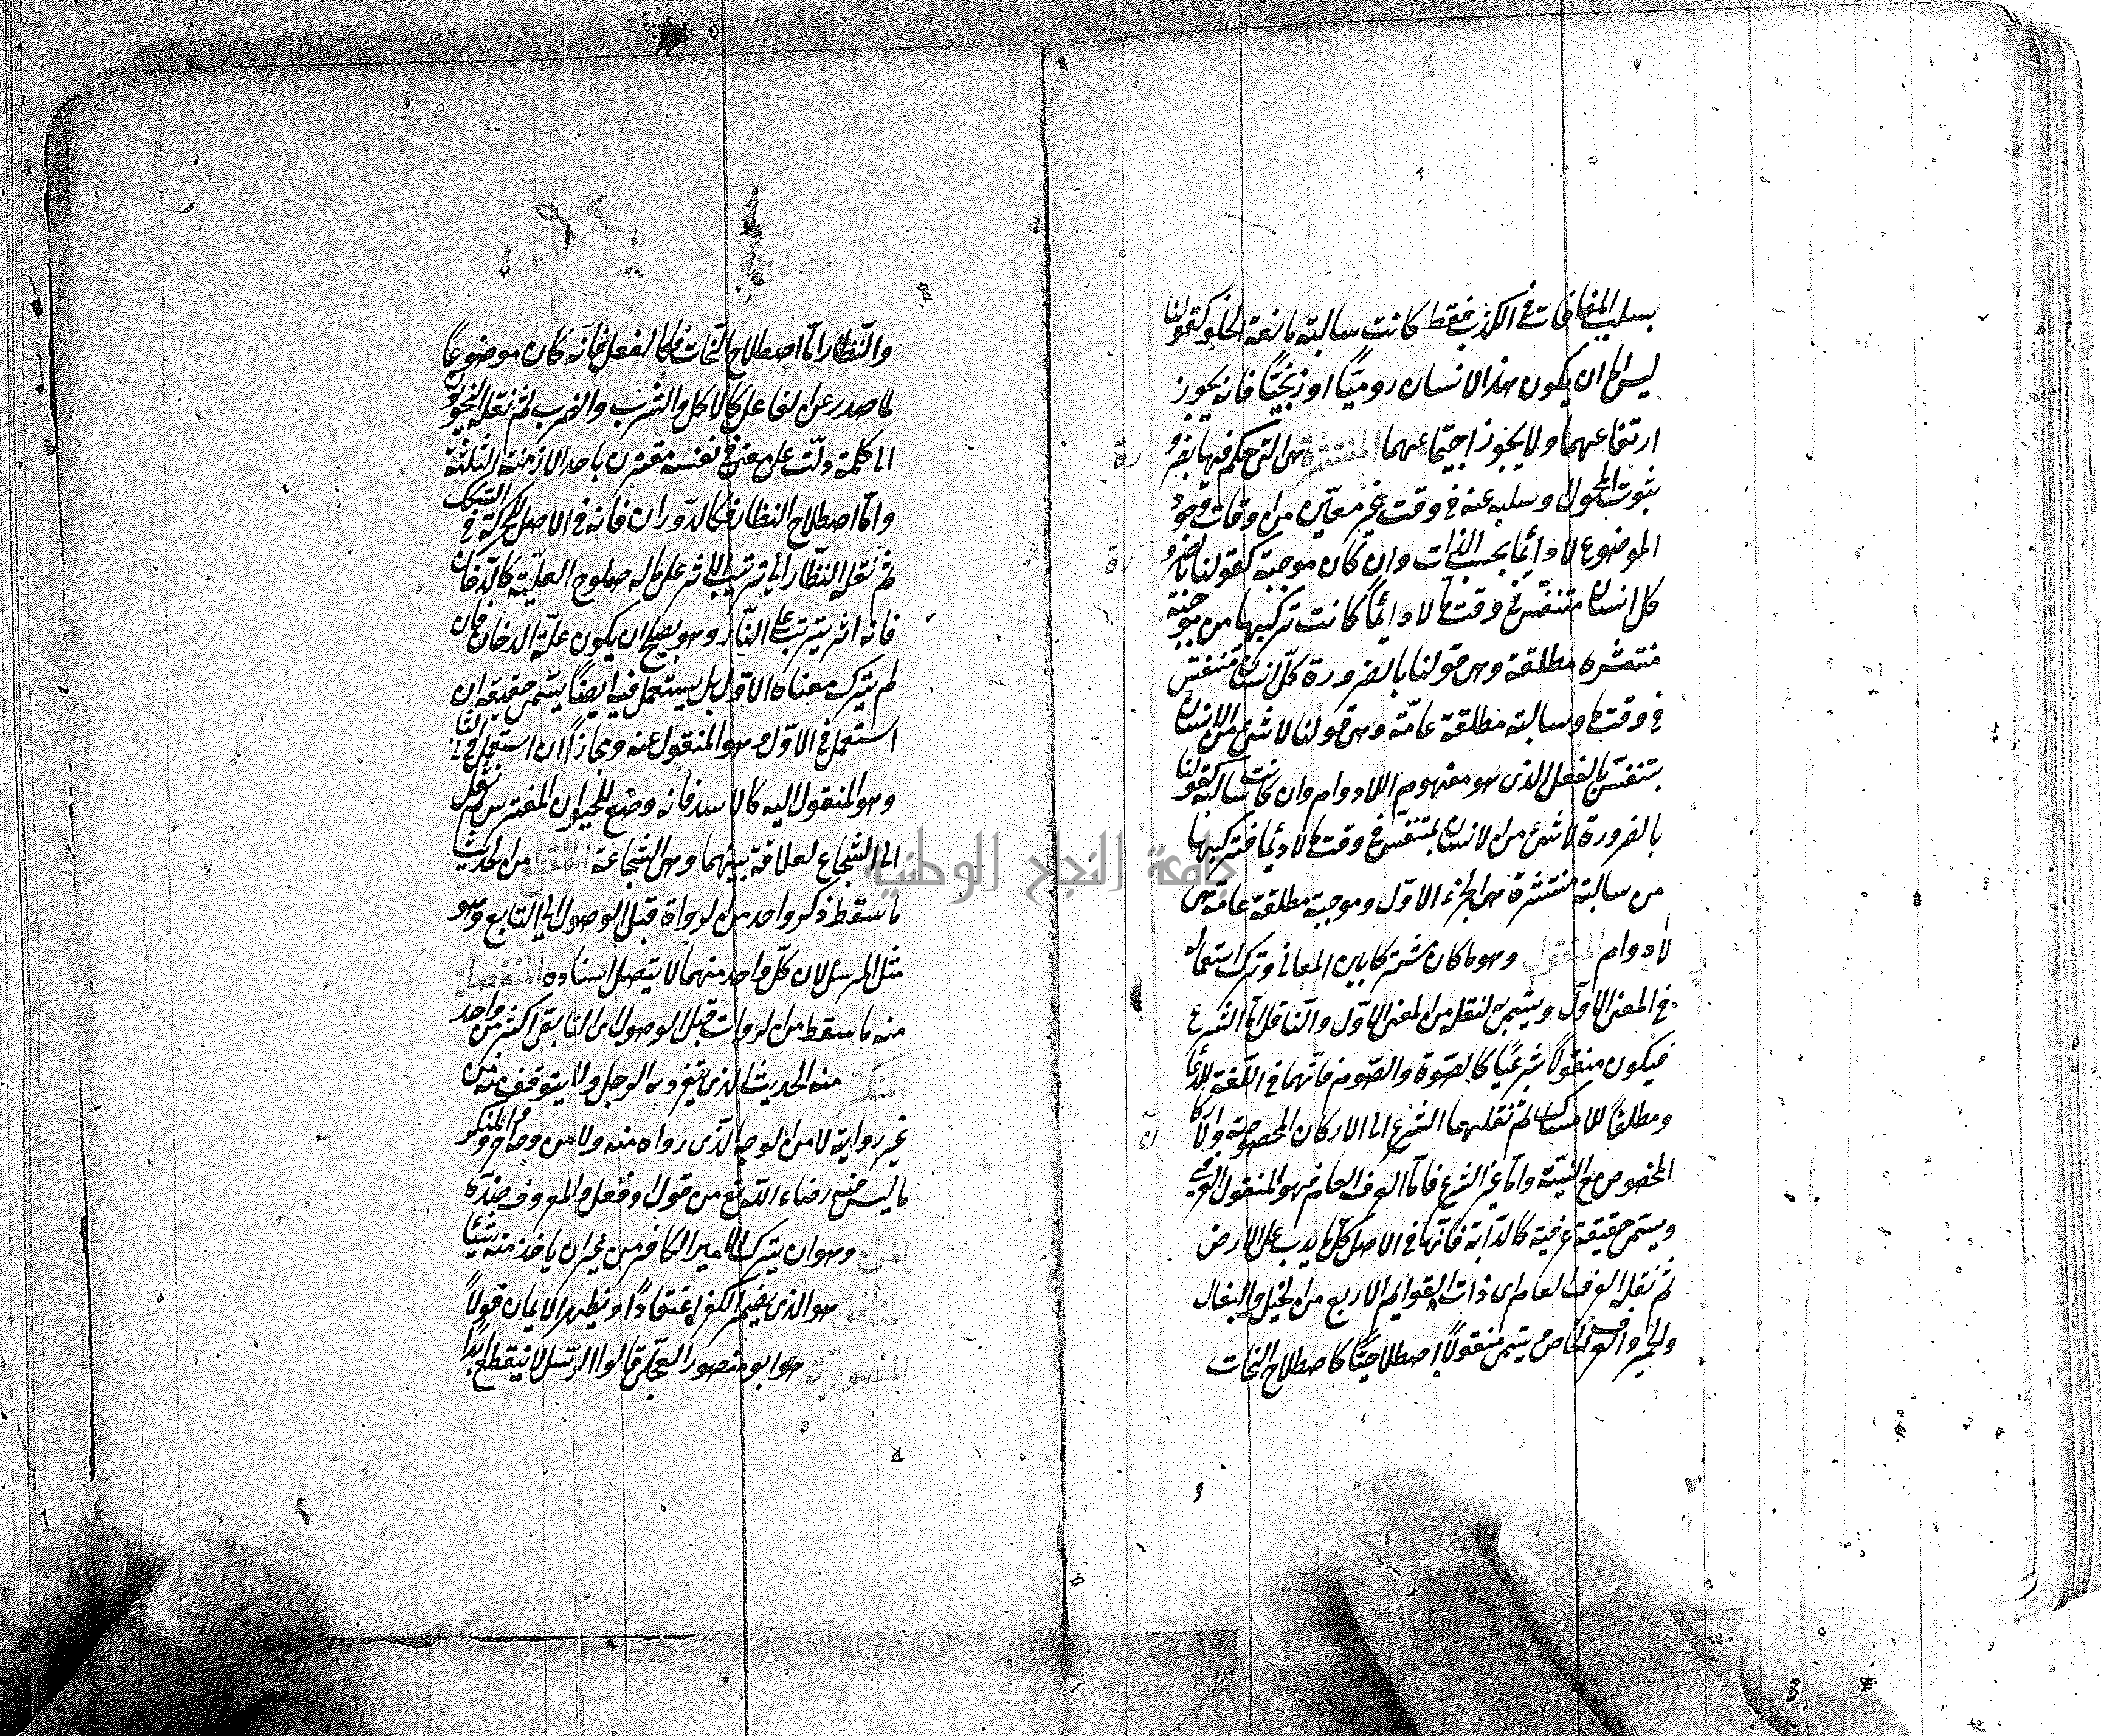 بسلب المنافات فى الكذب فقط كانت سالبة مانعة الخلو كقولنا
ليس اما ان يكون هذا الانسان روميّا او زنجيّا فانه يجوز
ارتفاعهما ولا يجوز اجتماعهما المنتشرة هى التى حكم فيها بضرورة
بثبوت المحمول وسلبه عنه فى وقت غير معيّن من اوقات وجود
الموضوع لا دائما بحسب الذات وان كان موجبة كقولنا بالضرورة
كل انسان متنفّس فى وقت ما لا دائمًا كانت تركيبها من موجبة
منتشره مطلقة وهى قولنا بالضرورة كلّ انسان متنفّس
فى وقت ما وسالبة مطلقة عامّة وهى قولنا لا شئ من الانسان
بمتنفّس بالفعل الذى هو مفهوم اللادوام وان كانت سالبة كقولنا
بالضرورة لا شئ من الانسان بمتنفّس فى وقت ما لا دائما فتركيبها
من سالبة منتشرة هى الجزء الاوّل وموجبة مطلقة عامة هى
لادوام المنقول وهو ما كان مشتركا بين المعانى وترك استعماله
فى المعنى الاوّل ويسمى لنقله من المعنى الاوّل والنّاقل امّا الشرع
فيكون منقولاً شرعيّا كالصّلوة والصّوم فانّهما فى اللّغة للدعاء
ومطلقًا للامساك ثم نقلهما الشرع الى الاركان المخصوصة والامساك
المخصوص مع النيّة وامّا غير الشرع فامّا العرف العام فهو المنقول العرفى
ويسمى حقيقة عرفية كالدّابّة فانّها فى الاصل لكل ما يدب على الارض
ثم نقله العرف العام الى ذات القوايم الاربع من الخيل والبغال
والحمير والعرف الخاص ويسمى منقولاً اصطلاحيّا كاصطلاح النحات
والنّظار امّا اصطلاح النّحات فكالفعل فانّه كان موضوعًا
لما صدر عن الفاعل كالاكل والشرب والضرب ثم نقله النحويون
الى كلمة دلّت على معنى فى نفسه مقترن باحد الازمنة الثلثة
وامّا اصطلاح النظار فكالدّوران فانه فى الاصل للحركة فى السكك
ثم نقله النظّار الى ترتيب الاثر على ماله صلوح العليّة كالدّخان
فانه اثر يترتب على النّار وهو يصلح ان يكون علّة الدخان فان
لم يترك معناه الاوّل بل يستعمل فيه ايضًا يسمى حقيقة ان
استعمل فى الاوّل وهو المنقول عنه ومجازاً ان استعمل فى الثانى
وهو المنقول اليه كالاسد فانه وضع للحيوان المفترس ثم نقل
الى الشجاع لعلاقة بينهما وهى الشجاعة المنقطع من الحديث
ما سقط ذكر واحد من الرواة قبل الوصول الى التابع وهو
مثل المرسل لان كلّ واحد منهما لا يتصل اسناده المنفصل
منه ما سقط من الروات قبل الوصول الى التابعى اكثر من واحد
المنكر منه الحديث الذى يتفرد به الرجل ولا يتوقف متنه من
غير رواية لا من الوجه الّذى رواه منه ولا من وجه اخر المنكر
ما ليس فيه رضاء الله تع من قول او فعل والمعروف ضدّه
المن وهو ان يترك الامير الكافر من غير ان ياخذ منه شيئا
المنافق هو الذى يضمر الكفر اعتقادًا ويظهر الايمان قولاً
المنصوريّة هو ابو منصور العجلى قالوا الرّسل لا ينقطع ابدا
جامعة النجاح الوطنية